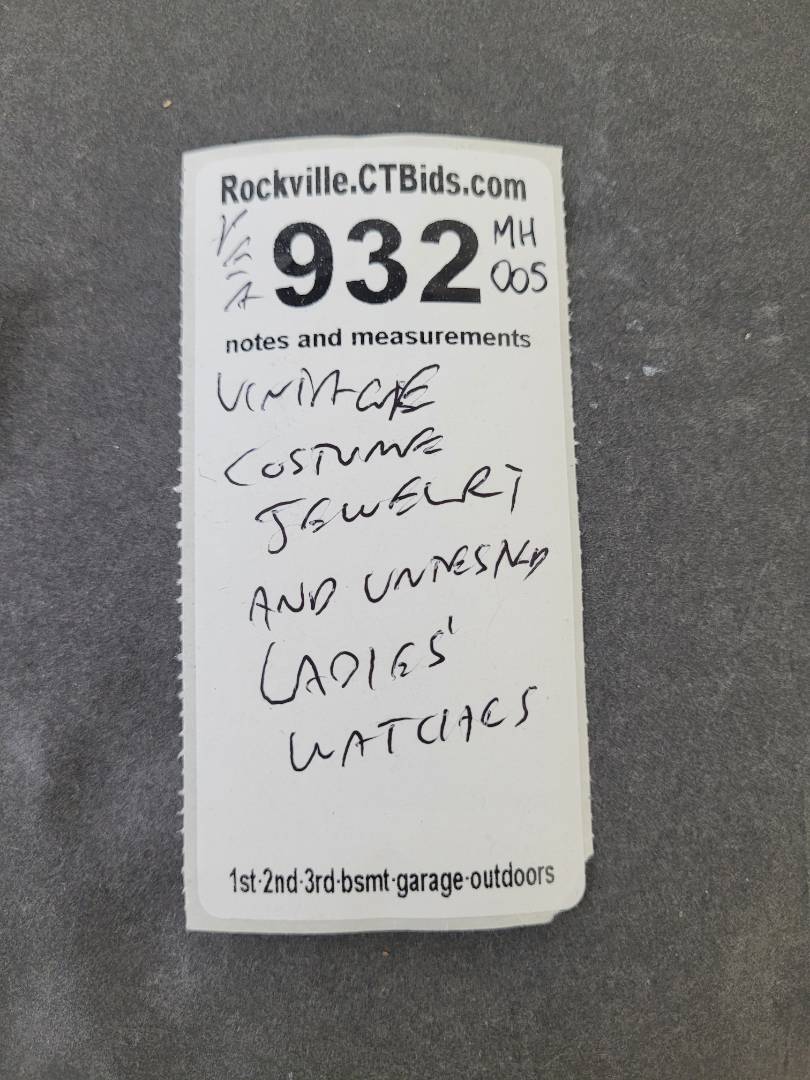 Rockville.CTBids.com
932
MH
005
notes and measurements
VINTAGE
COSTUME
JEWELRY
AND UNTESTED
LADIES'
WATCHES
1st·2nd·3rd·bsmt·garage·outdoors